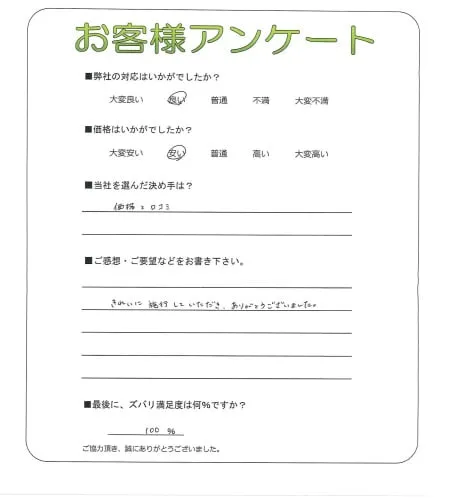 お客様アンケート
■弊社の対応はいかがでしたか？
大変良い 良い 普通 不満 大変不満
■価格はいかがでしたか？
大変安い 安い 普通 高い 大変高い
■当社を選んだ決め手は？
価格と口コミ
■ご感想・ご要望などをお書き下さい。
きれいに施行していただき、ありがとうございました。
■最後に、ズバリ満足度は何％ですか？
100 %
ご協力頂き、誠にありがとうございました。